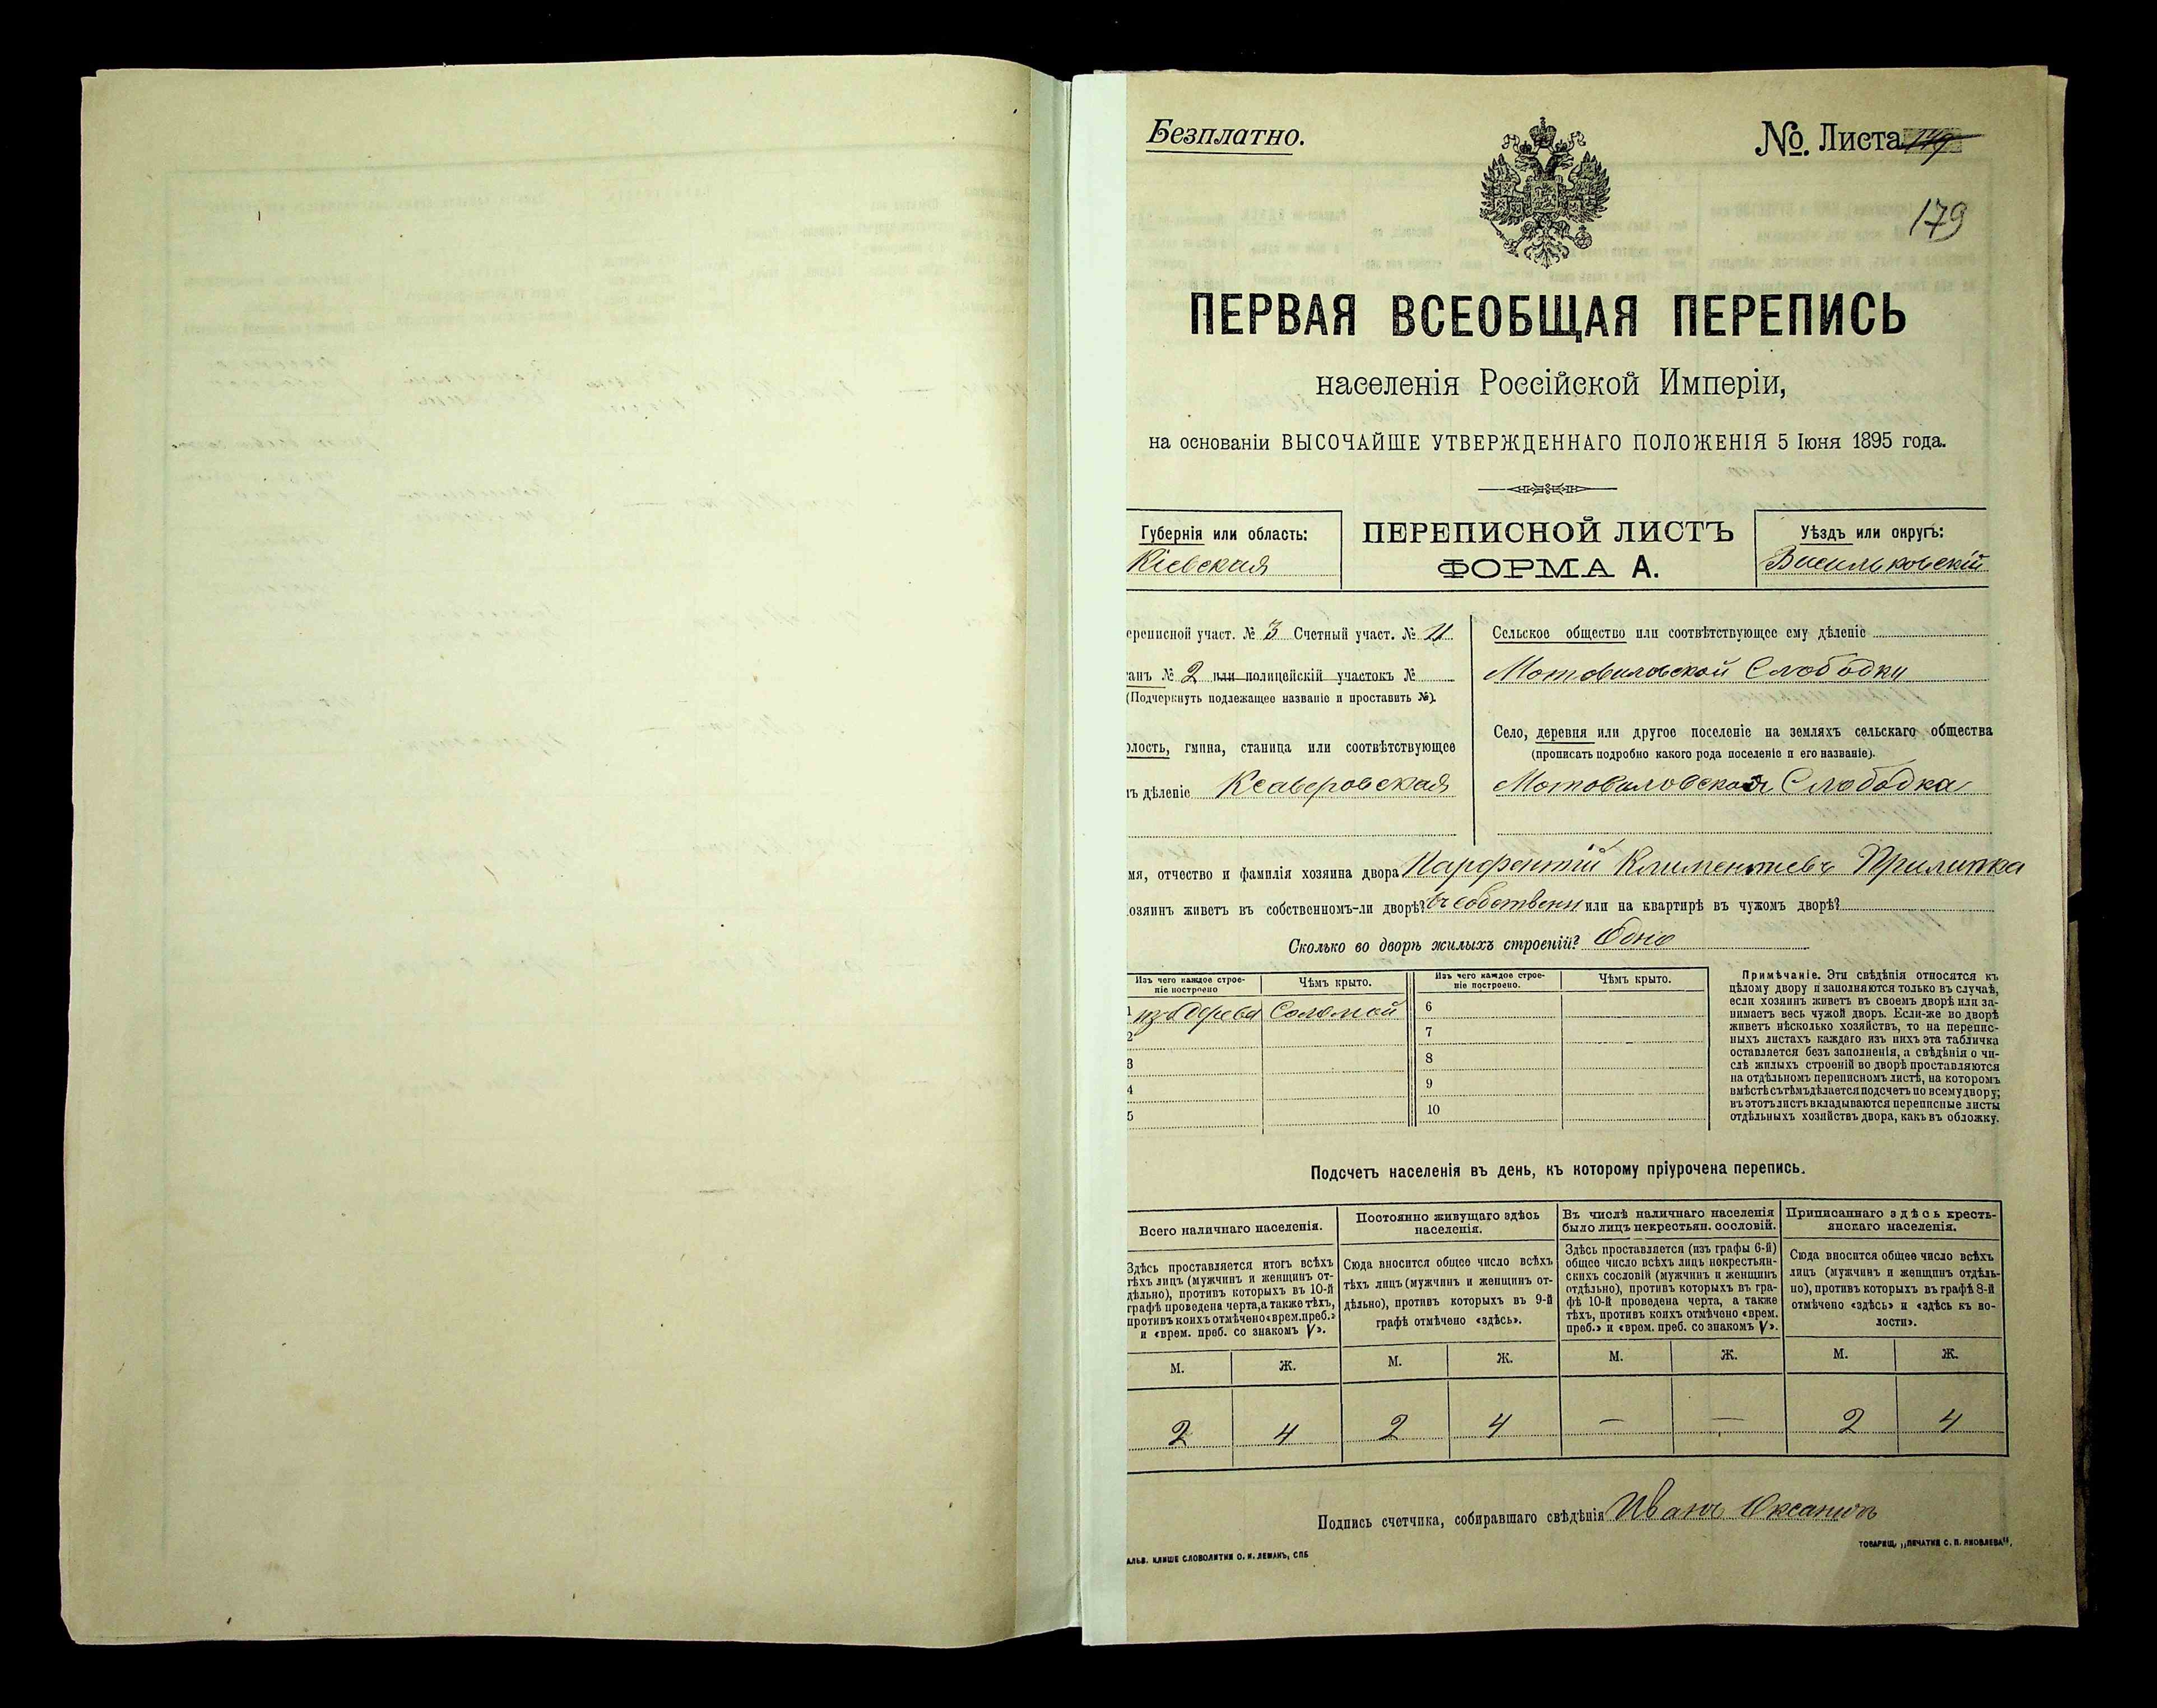 Безплатно.
№. Листа 149
179
ПЕРВАЯ ВСЕОБЩАЯ ПЕРЕПИСЬ
населенія Россійской Имперіи,
на основаніи ВЫСОЧАЙШЕ УТВЕРЖДЕННАГО ПОЛОЖЕНІЯ 5 Іюня 1895 года.
Губернія или область:
Кіевская
ПЕРЕПИСНОЙ ЛИСТЪ
ФОРМА А.
Уѣздъ или округъ:
Васильковскій
ереписной участ. № 3 Счетный участ. № 11
танъ № 2 или полицейскій участокъ №
(Подчеркнуть подлежащее названіе и проставить №).
олость, гмина, станица или соотвѣтствующее
ъ дѣленіе Ксаверовская
Сельское общество или соотвѣтствующее ему дѣленіе
Мотовиловской Слободки
Село, деревня или другое поселеніе на земляхъ сельскаго общества
(прописать подробно какого рода поселеніе и его названіе).
Мотовиловская Слободка
мя, отчество и фамилія хозяина двора Парфентій Климентіевъ Прилипка
озяинъ живетъ въ собственномъ-ли дворѣ? въ собственн или на квартирѣ въ чужомъ дворѣ?
Сколько во дворѣ жилыхъ строеній? Одно
Изъ чего каждое строе-
ніе построено
Чѣмъ крыто.
Изъ чего каждое строе-
ніе построено.
Чѣмъ крыто.
1 изъ дерева Соломой 6
2 7
3 8
4 9
5 10
Примѣчаніе. Эти свѣдѣнія относятся къ
цѣлому двору и заполняются только въ случаѣ,
если хозяинъ живетъ въ своемъ дворѣ или за-
нимаетъ весь чужой дворъ. Если-же во дворѣ
живетъ нѣсколько хозяйствъ, то на перепис-
ныхъ листахъ каждаго изъ нихъ эта табличка
оставляется безъ заполненія, а свѣдѣнія о чи-
слѣ жилыхъ строеній во дворѣ проставляются
на отдѣльномъ переписномъ листѣ, на которомъ
вмѣстѣ съ тѣмъ дѣлается подсчетъ по всему двору;
въ этотъ листъ вкладываются переписные листы
отдѣльныхъ хозяйствъ двора, какъ въ обложку.
Подсчетъ населенія въ день, къ которому пріурочена перепись.
Всего наличнаго населенія.
Здѣсь проставляется итогъ всѣхъ
тѣхъ лицъ (мужчинъ и женщинъ от-
дѣльно), противъ которыхъ въ 10-й
графѣ проведена черта, а также тѣхъ,
противъ коихъ отмѣчено «врем. преб.»
и «врем. преб. со знакомъ V».
Постоянно живущаго здѣсь
населенія.
Сюда вносится общее число всѣхъ
тѣхъ лицъ (мужчинъ и женщинъ от-
дѣльно), противъ которыхъ въ 9-й
графѣ отмѣчено «здѣсь».
Въ числѣ наличнаго населенія
было лицъ некрестьян. сословій.
Здѣсь проставляется (изъ графы 6-й)
общее число всѣхъ лицъ некрестьян-
скихъ сословій (мужчинъ и женщинъ
отдѣльно), противъ которыхъ въ гра-
фѣ 10-й проведена черта, а также
тѣхъ, противъ коихъ отмѣчено «врем.
преб.» и «врем. преб. со знакомъ V».
Приписаннаго здѣсь кресть-
янскаго населенія.
Сюда вносится общее число всѣхъ
лицъ (мужчинъ и женщинъ отдѣль-
но), противъ которыхъ въ графѣ 8-й
отмѣчено «здѣсь» и «здѣсь къ во-
лости».
М. Ж. М. Ж. М. Ж. М. Ж.
2 4 2 4 — — 2 4
Подпись счетчика, собиравшаго свѣдѣнія Иванъ
АЛЬВ. КЛИШЕ СЛОВОЛИТНИ О. И. ЛЕМАНЪ, СПБ
ТОВАРИЩ. „ПЕЧАТНЯ С. П. ЯКОВЛЕВА“,